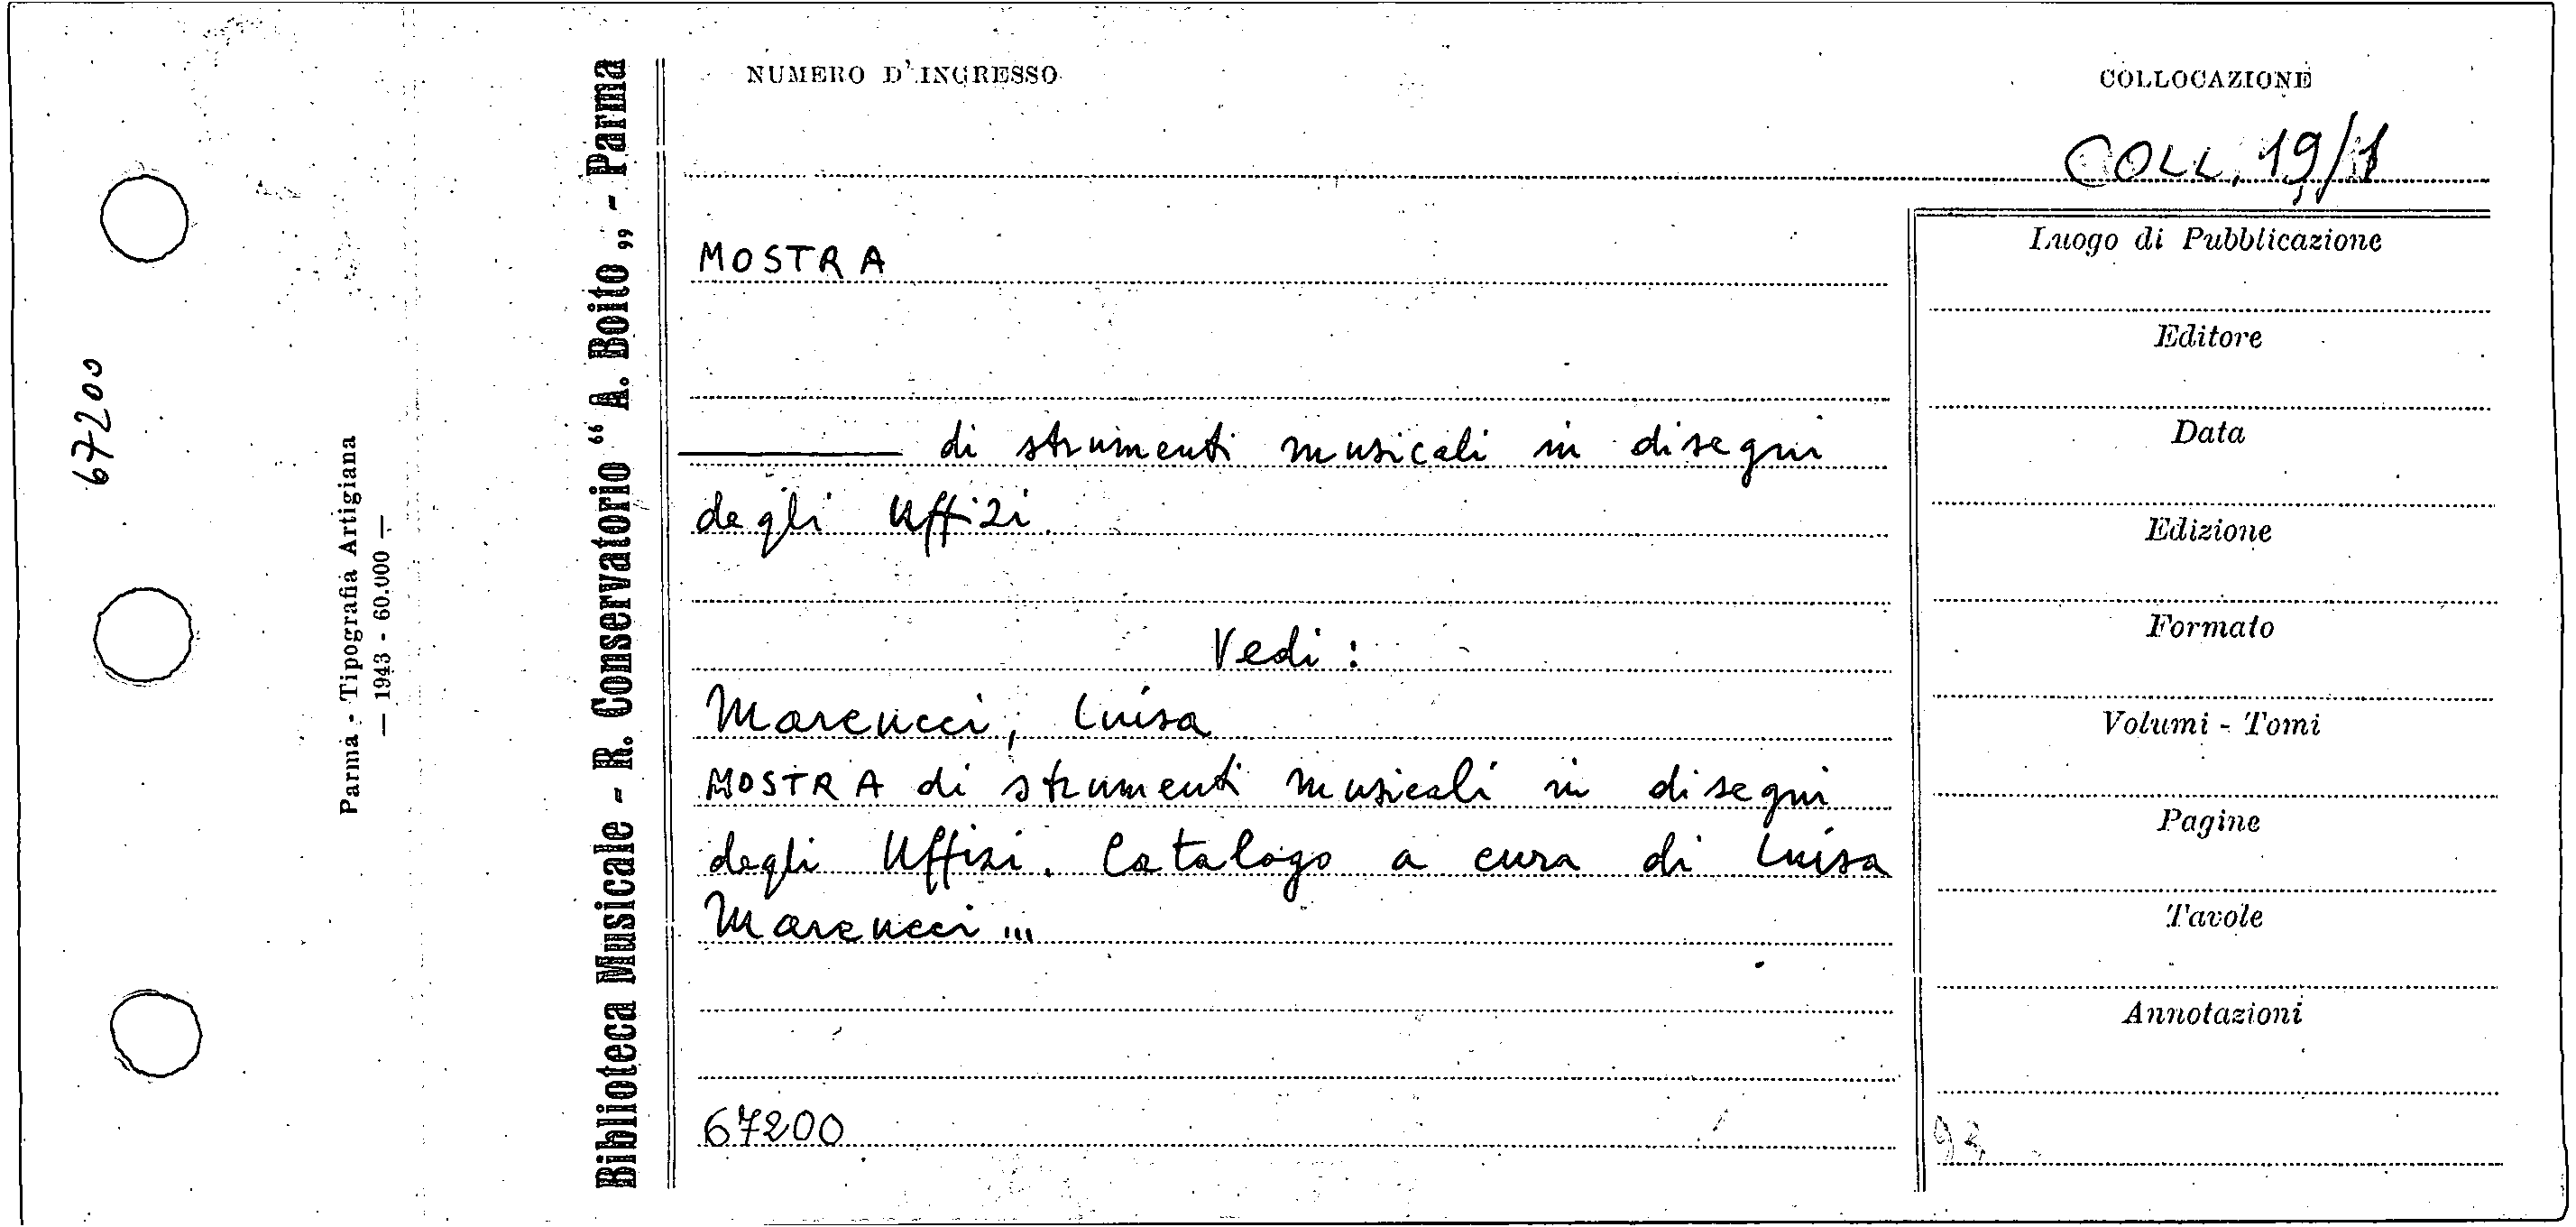 67200
Parma - Tipografia Artigiana
— 1943 - 60.000 —
Biblioteca Musicale - R. Conservatorio “ A. Boito „ - Parma
NUMERO D'INGRESSO
COLLOCAZIONE
COLL. 19/1
MOSTRA
——— di strumenti musicali in disegni
degli Uffizi.
Vedi :
Marcucci, Luisa
MOSTRA di strumenti musicali in disegni
degli Uffizi. Catalogo a cura di Luisa
Marcucci ...
67200
Luogo di Pubblicazione
Editore
Data
Edizione
Formato
Volumi - Tomi
Pagine
Tavole
Annotazioni
93